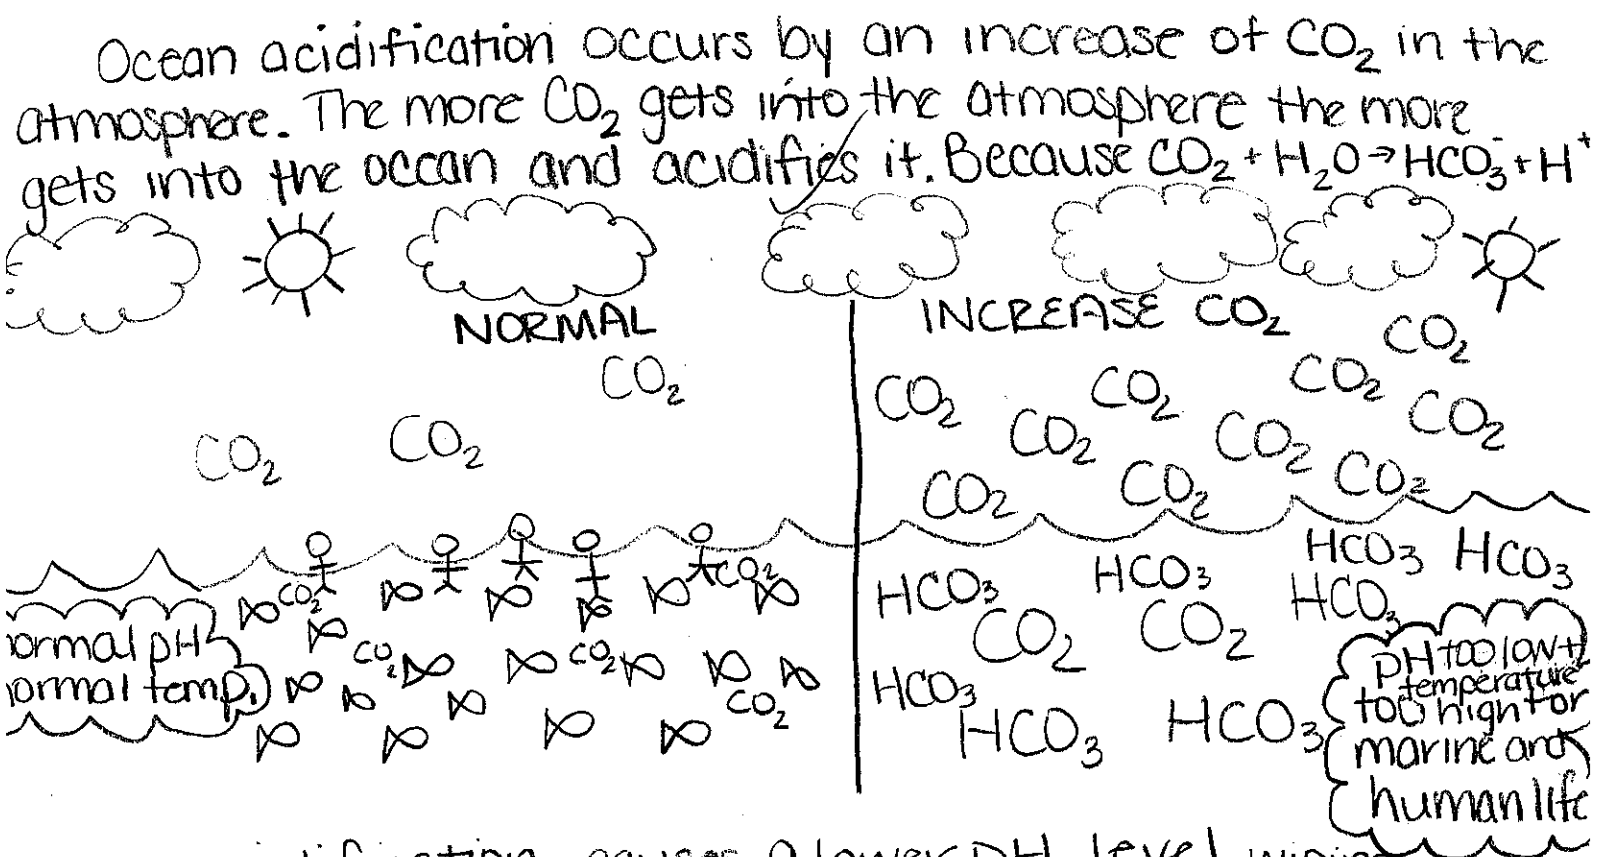 Ocean acidification occurs by an increase of CO₂ in the
atmosphere. The more CO₂ gets into the atmosphere the more
gets into the ocean and acidifies it. Because CO₂ + H₂O → HCO₃⁻ + H⁺
NORMAL
CO₂
CO₂
CO₂
CO₂
CO₂
CO₂
CO₂
CO₂
ormal pH
ormal temp.
INCREASE CO₂
CO₂
CO₂
CO₂
CO₂
CO₂
CO₂
CO₂
CO₂
CO₂
CO₂
HCO₃
HCO₃
HCO₃
HCO₃
HCO₃
CO₂
CO₂
HCO₃
HCO₃
HCO₃
pH too low +
temperature
too high for
marine and
human life
causes a lower pH level